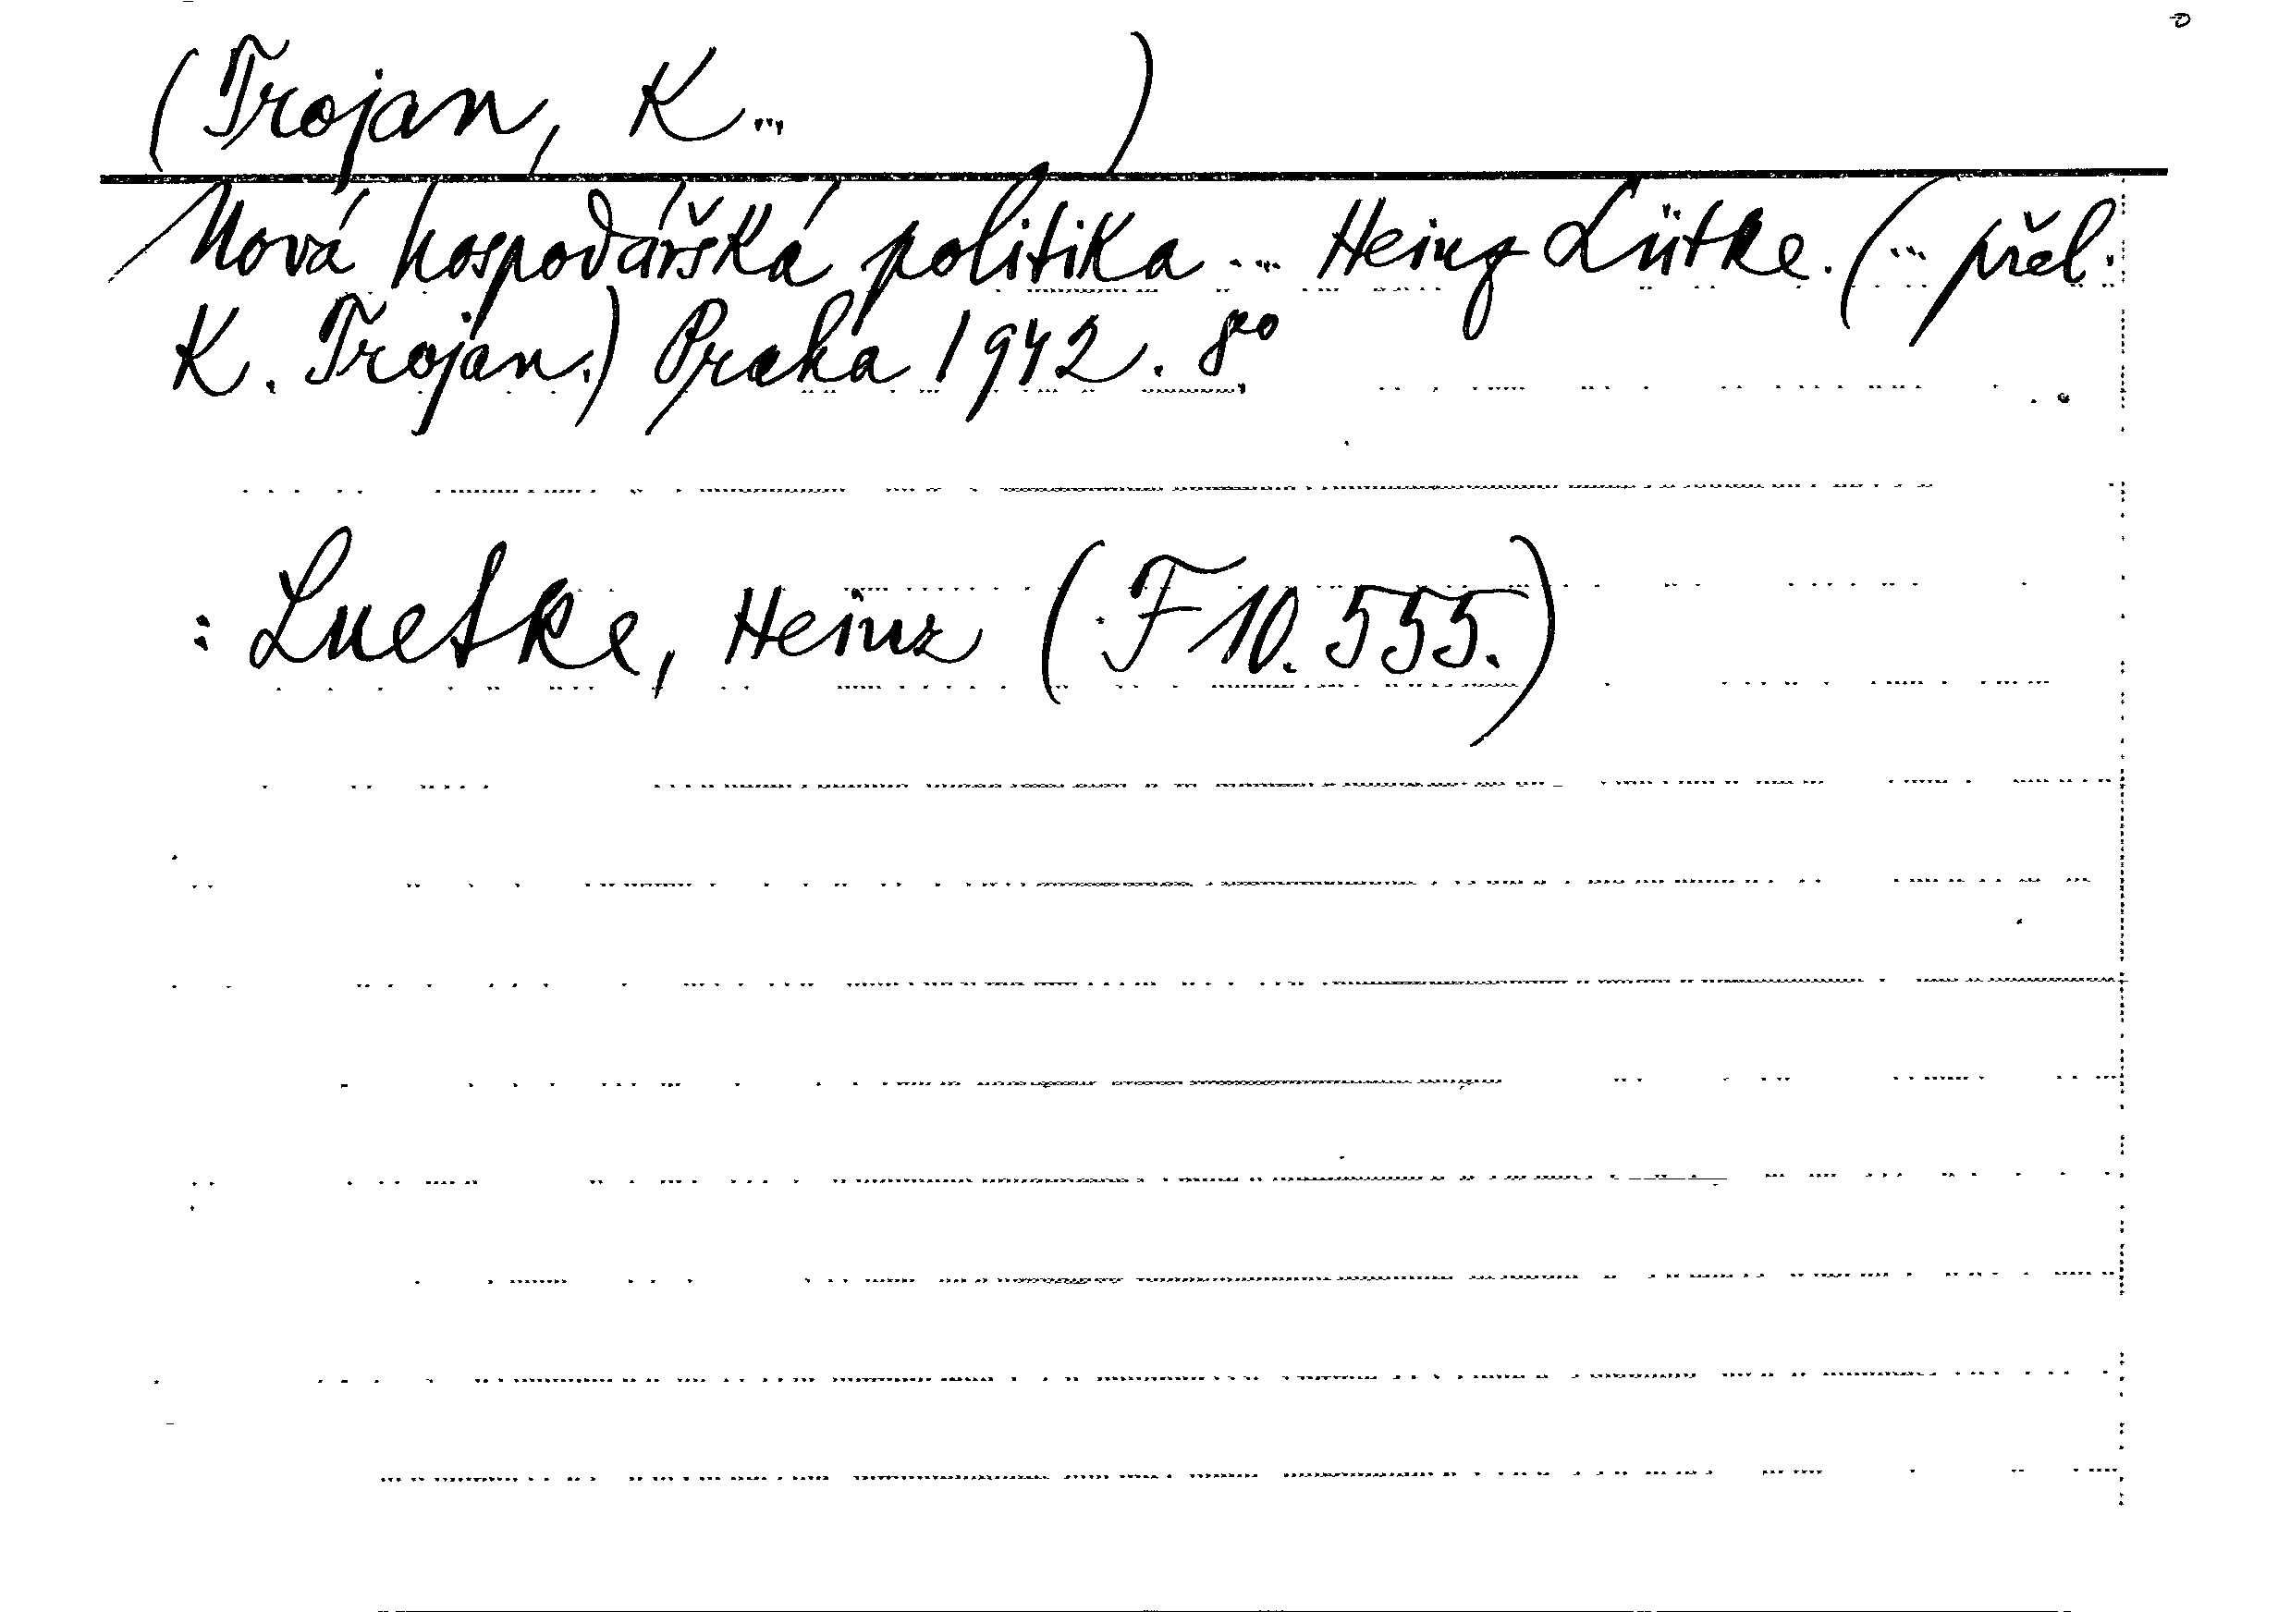 (Trojan, K... )
Nová hospodářská politika ... Heinz Lütke. (... přel.
K. Trojan.) Praha 1942. 8°
: Luetke, Heinz (F 10.555.)